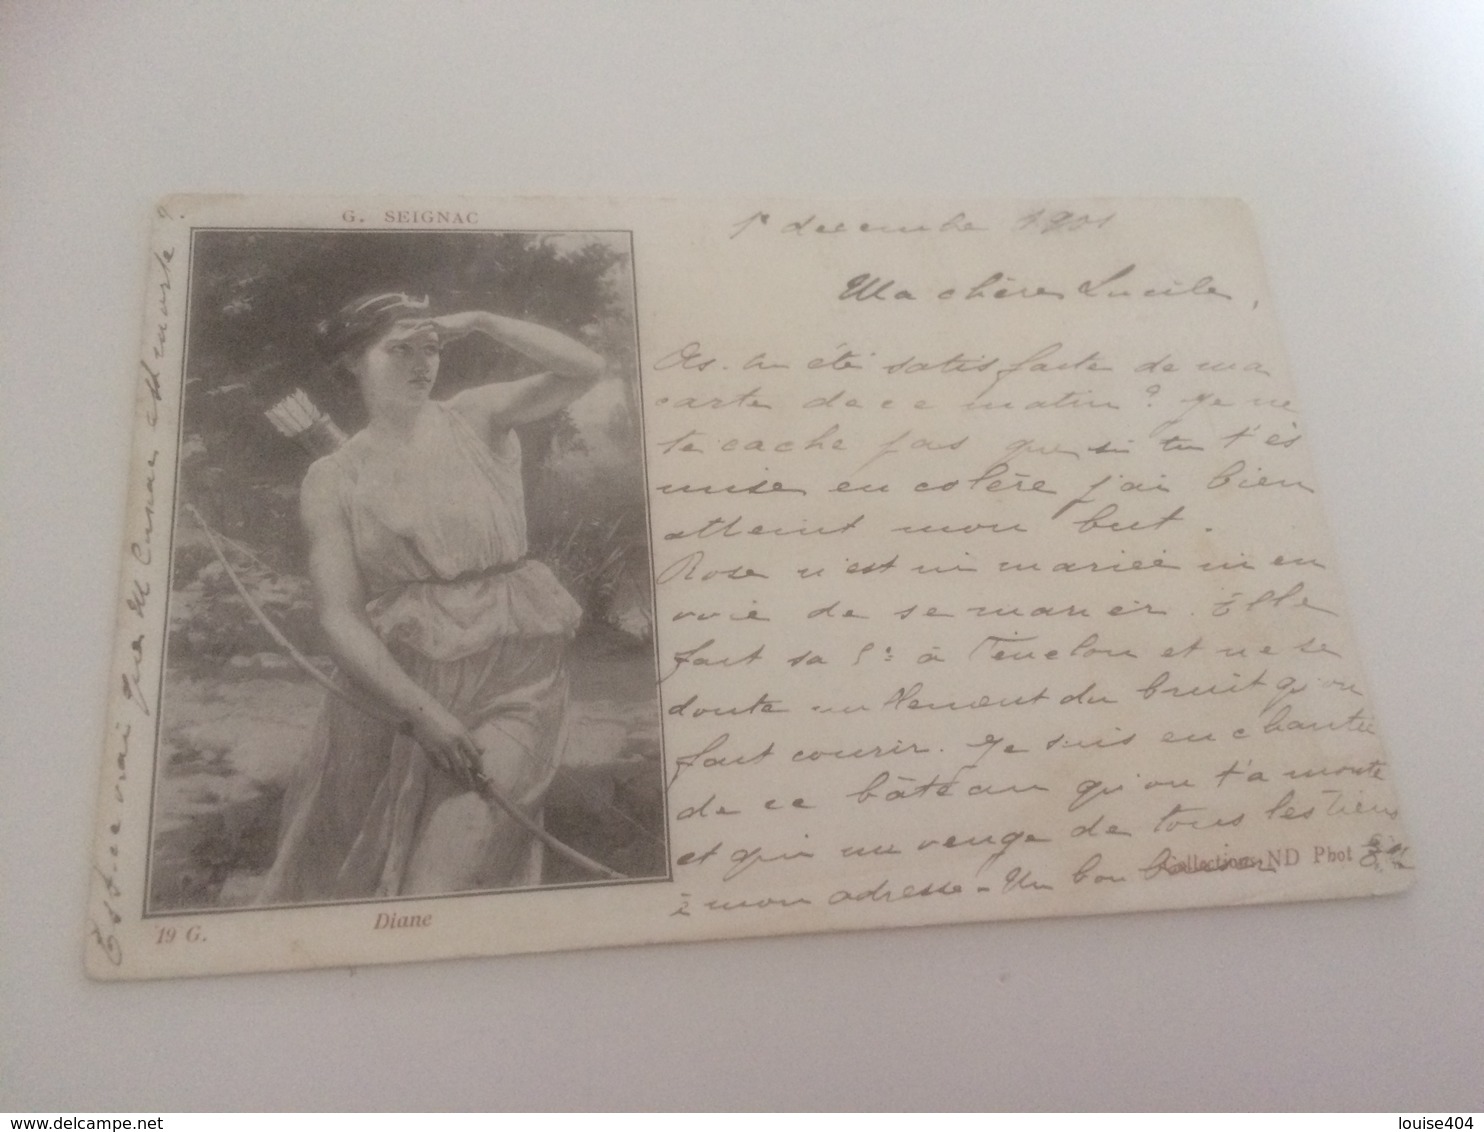 G. SEIGNAC
1r decembre 1901
Ma chère Lucile,
As-tu été satisfaite de ma
carte de ce matin? Je ne
te cache pas que si tu t'es
mise en colère j'ai bien
atteint mon but.
Rose n'est ni mariée ni en
voie de se marier. Elle
fait sa à Fénelon et ne se
doute nullement du bruit qu'on
fait courir. Je suis enchantée
de ce bâteau qu'on t'a monté
et qui me venge de tous les tiens
à mon adresse. Un bon baiser
Collection ND Phot
Diane
19 G.
Est-ce vrai que M est morte?
www.delcampe.net
louise404